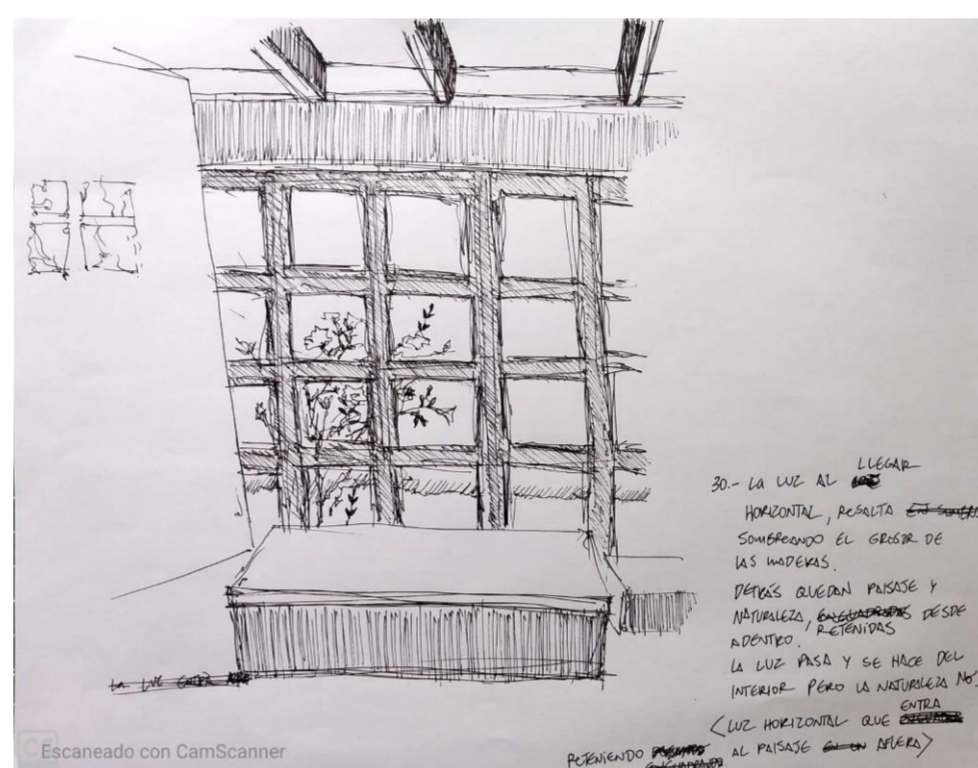 30.- LA LUZ AL LLEGAR
HORIZONTAL, RESALTA
SOMBREANDO EL GROSOR DE
LAS MADERAS.
DETRÁS QUEDAN PAISAJE Y
NATURALEZA, ENCUADRADAS RETENIDAS DESDE
ADENTRO.
LA LUZ PASA Y SE HACE DEL
INTERIOR PERO LA NATURALEZA NO,
<LUZ HORIZONTAL QUE ENTRA
RETENIENDO AL PAISAJE AFUERA>
LA LUZ ENTRA
Escaneado con CamScanner